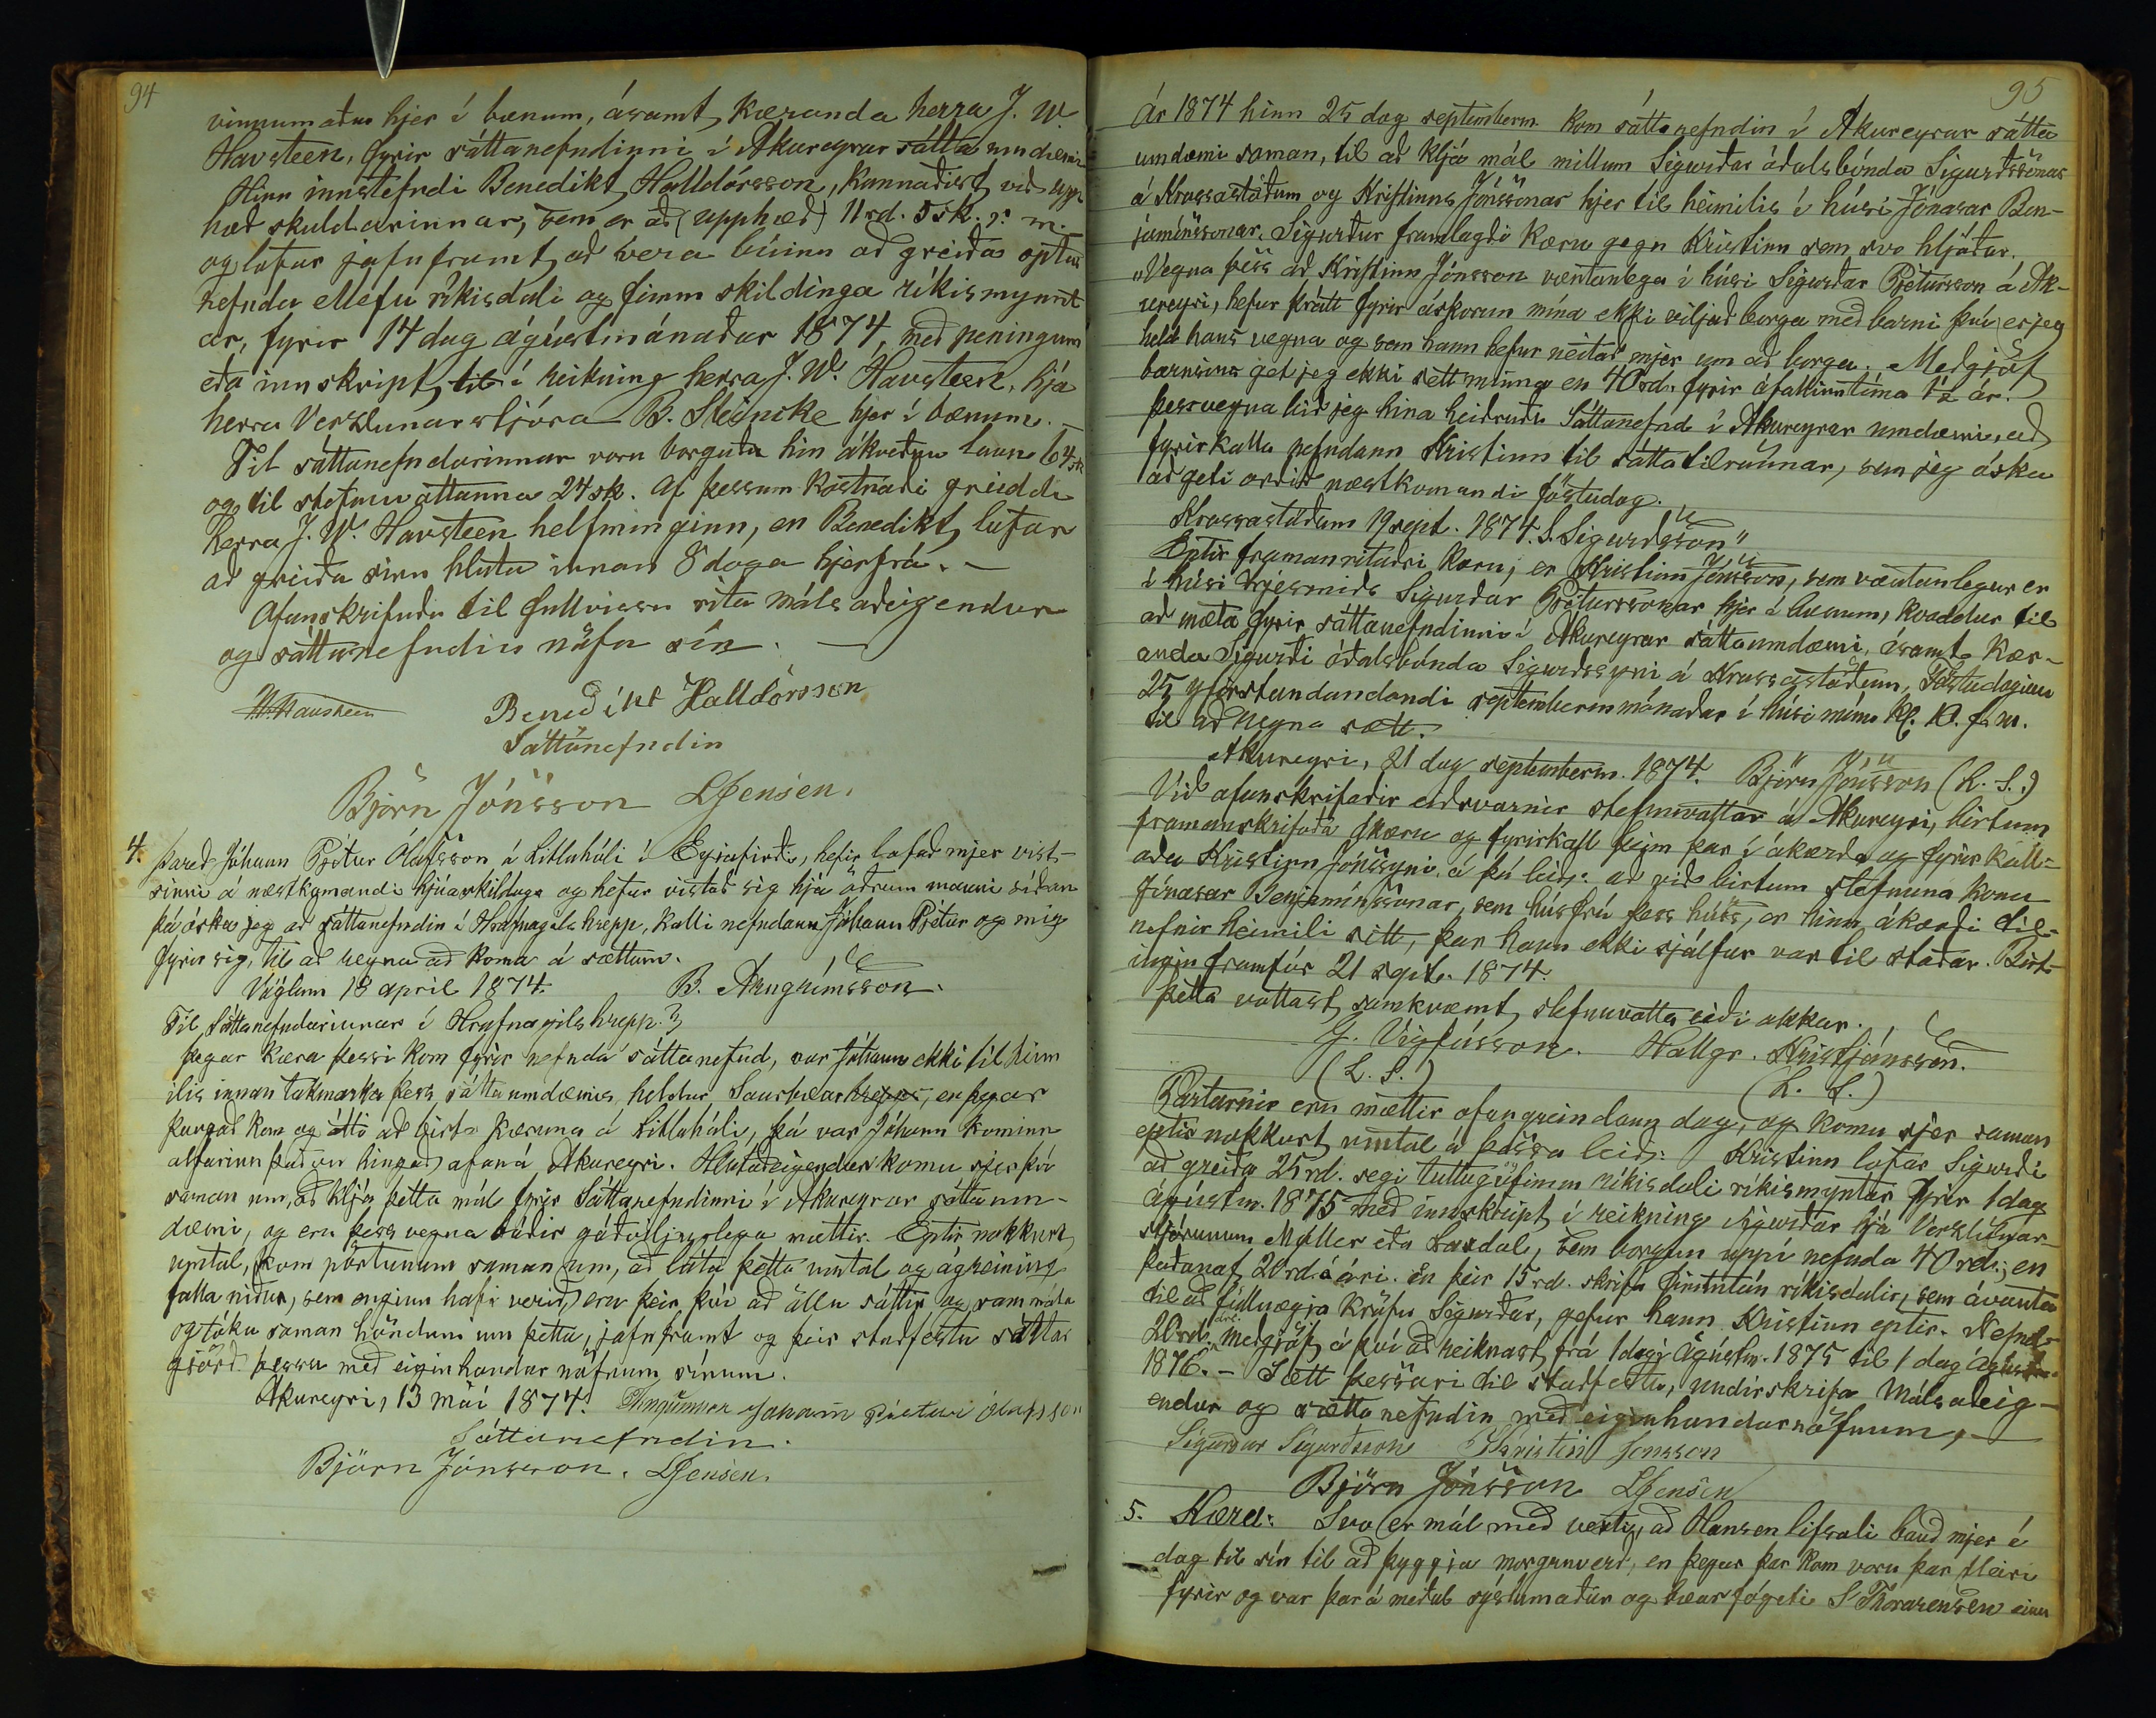 94
vinnumaður hjer í bænum, ásamt kæranda herra J. W.
Havsteen, fyrir sáttanefndinni í Akureyrar sáttaumdæmi
Hinn innstefndi Benedikt Halldórsson, kannaðist við upp
hæð skuldarinnar, sem er að (upphæð) 11 rd. 5 sk. r. m.
og lofar jafnframt að vera búinn að greiða optar
nefnda ellefu ríkisdali og fimm skildinga ríkismynt
ar, fyrir 14 dag ágústmánaðar 1874, með peningum
eða innskript til í reikning herra J. W. Havsteen, hjá
herra Verzlunarstjóra B. Steincke hjer í bænum. –
Til sáttanefndarinnar voru borguð hin ákveðnu laun 64 sk
og til stefnuvottanna 24 sk. Af þessum kostnaði greiddi
herra J. W. Havsteen helfminginn, en Benedikt lofar
að greiða sinn hluta innan 8 daga hjerfrá. –
Ofanskrifuðu til fullvissu rita málsaðeigendur
og sáttanefndin nöfn sín. –
JWHavsteen Benedikt Halldórsson
Sáttanefndin
Björn Jónsson LJensen.
4. Þareð Jóhann Pjetur Ólafsson á Litluhóli í Eyjafirði, hefir lofað mjer vist-
sinni á næstkomandi hjúaskildaga og hefur vistað sig hjá öðrum manni síðan
þá óska jeg að sáttanefndin í Hrafnagils hrepp, kalli nefndann Jóhann Pjetur og mig
fyrir sig, til að reyna að koma á sættum.
Vöglum 18 apríl 1874. B. Arngrímsson.
Til Sáttanefndarinnar í Hrafnagilshrepp.
Þegar kæra þessi kom fyrir nefnda sáttanefnd, var Jóhann ekki til heim
ilis innan takmarka þess sáttaumdæmis heldur Saurbæarhrepps, en þegar
þangað kom og átti að birta kæruna á Litluhóli, þá var Jóhann kominn
alfarinn þaðan hingað ofaná Akureyri. Hlutaðeigendur komu sjer því
saman um, að kljá þetta mál fyrir Sáttanefndinni í Akureyrar sáttaum-
dæmi, og eru þess vegna báðir góðviljuglega mættir. Eptir nokkurt
umtal, kom pörtunum saman um, að láta þetta umtal og ágreining
falla niður, sem enginn hafi verið, eru þeir því að öllu sáttir og sammála
og tóku saman höndum um þetta, jafnframt og þeir staðfestu sáttar
gjörð þessa með eiginhandar nöfnum sínum.
Akureyri, 13 mái 1874. BArngrímsson Jóhann Pietur Ólafsson
Sáttanefndin.
Björn Jónsson. LJensen.
95
Ár 1874 hinn 25 dag septemberm. kom sáttanefndin í Akureyrar sátta
umdæmi saman, til að kljá mál millum Sigurðar óðalsbónda Sigurðssonar
á Krossastöðum og Kristinns Jónssonar hjer til heimilis í húsi Jónasar Ben-
jamínssonar. Sigurður framlagði kæru gegn Kristinn sem svo hljóðar.
„Vegna þess að Kristinn Jónsson væntanlega í húsi Sigurðar Pjetursson á Ak-
ureyri, hefur þrátt fyrir áskorun mína ekki viljað borga með barni því er jeg
held hans vegna og sem hann hefur neitað mjer um að borga. Meðgjöf
barnsins get jeg ekki sett minna en 40 rd. fyrir áfallinn tíma 1½ ár.
þessvegna bið jeg hina heiðruðu Sáttanefnd í Akureyrar umdæmi, að
fyrirkalla nefndann Kristinn til sáttatilraunar, sem jeg óska
að geti orðið næstkomandi föstudag.
Krossastöðum 19 sept. 1874. S. Sigurdsson"
Eptir framanritaðri kæru, er Kristinn Jónsson, sem væntanlegur er
í húsi trjesmiðs Sigurðar Pjeturssonar hjer í bænum, kvaddur til
að mæta fyrir sáttanefndinni í Akureyrar sáttaumdæmi, ásamt kær-
anda Sigurði óðalsbónda Sigurdssyni á Krossastöðum, Föstudaginn
25 yfirstandandi septembermánaðar í húsi mínu kl. 10. f. m.
til að reyna sætt.
Akureyri, 21 dag septemberm. 1874. Björn Jónsson (L. S.)
Við ofanskrifaðir eiðsvarnir stefnuvottar á Akureyri, birtum
framanskrifaða kæru og fyrirkall þeim þar í ákærða og fyrirkall-
aða Kristinn Jónssyni, á þá leið: að við birtum stefnuna konu
Jónasar Benjamínssonar, sem húsfrú þess húss, er hinn ákærði til-
nefnir heimili sitt, þar hann ekki sjálfur var til staðar. Birt-
ingin framfór 21 sept. 1874.
Þetta vottast samkvæmt stefnuvotta eiði okkar.
G. Vigfússon. Hallgr. Kristjánsson.
(L. S.) (L. S.)
Partarnir eru mættir ofangreindann dag, og komu sjer saman
eptir nokkurt umtal á þessa leið: Kristinn lofar Sigurði
að greiða 25 rd. segi tuttuguogfimm ríkisdali ríkismyntar fyrir 1 dag
ágústm. 1875 með innskript í reikning Sigurðar hjá Verzlunar-
stjórunum Möller eða Laxdal, sem borgun uppí nefnda 40 rd; en
þaðanaf 20 rd. á ári. En þeir 15 rd. skrifa fimmtán ríkisdalir, sem ávanta
til að fullnægja kröfu Sigurðar, gefur hann Kristinn eptir. Nefnd
20 rd. meðgjöf á því að reiknast frá 1 dag Ágústm. 1875 til 1 dag ágústm.
1876. – Sætt þessari til staðfestu, undirskrifa Málsaðeig-
endur og sættanefndin með eiginhandarnöfnum, –
Sigurður Sigurðsson Kristinn Jónsson
Björn Jónsson LJensen
5. Kæra: Svo er mál með vexti, að Hansen lifsali bauð mjer í
dag til sín til að þyggja morgunverð, en þegar þar kom voru þar fleiri
fyrir og var þar á meðal sýslumaður og bæarfógeti S Thorarensen einn